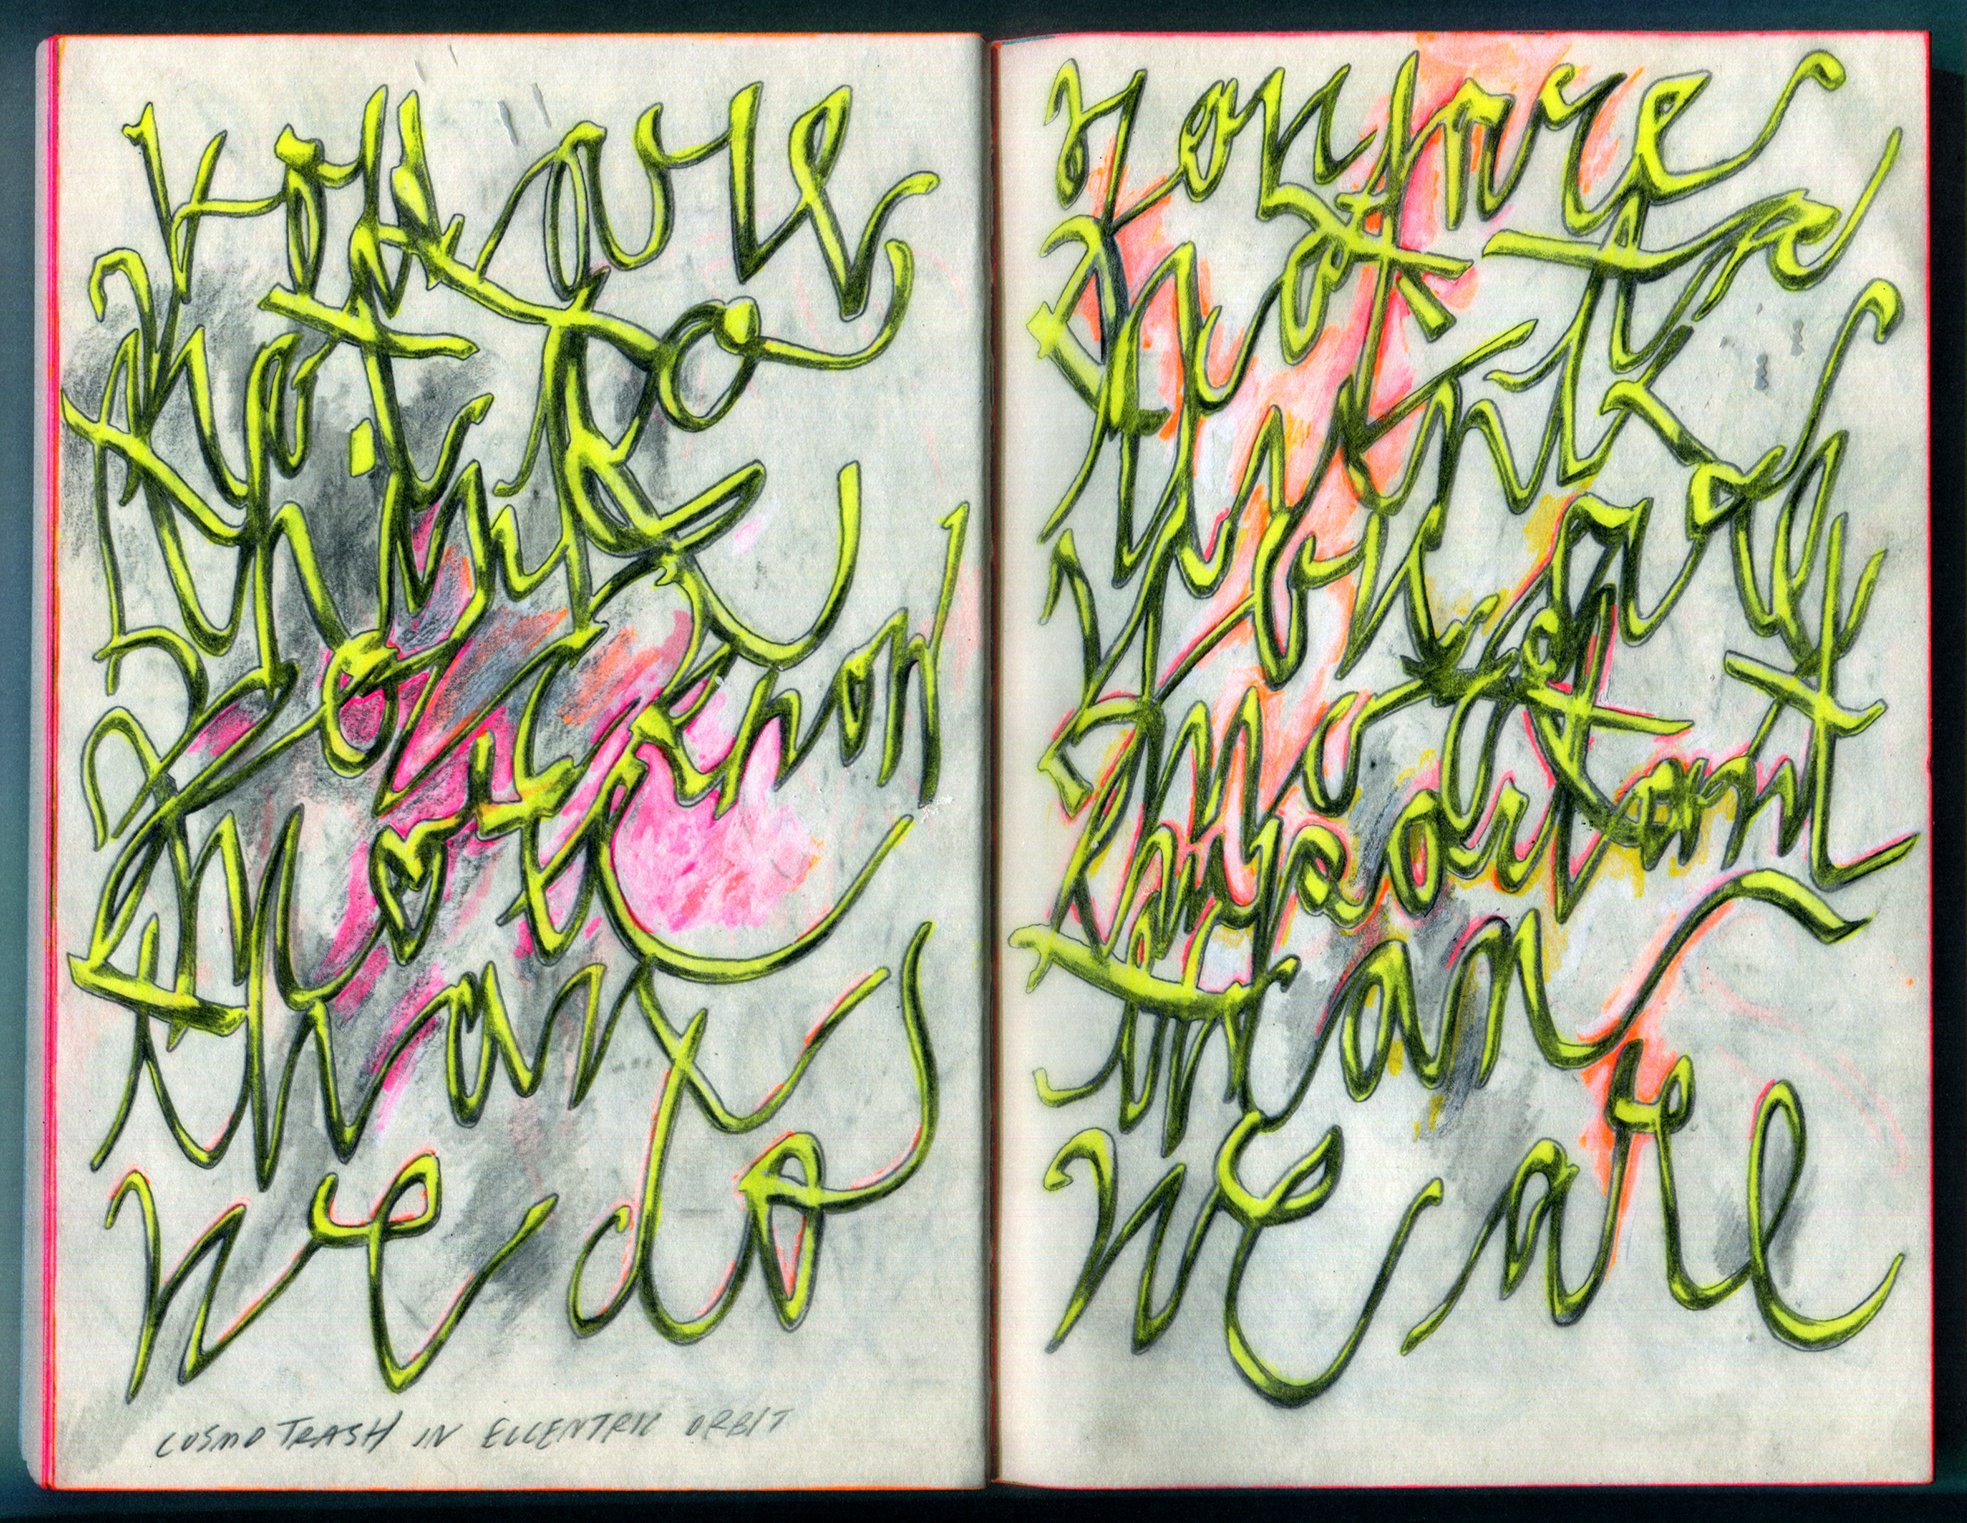 you are
not to
think
you know
more
than
we do
COSMO TRASH IN ECCENTRIC ORBIT
you are
not to
think
you are
more
important
than
we are